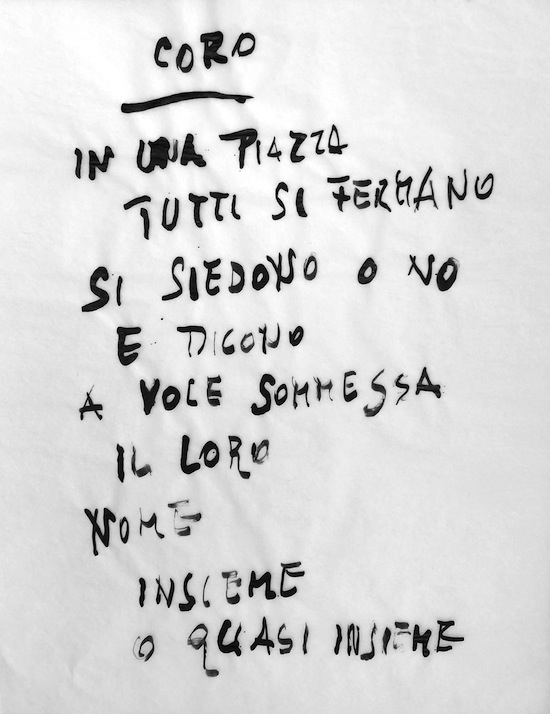 CORO
IN UNA PIAZZA
TUTTI SI FERMANO
SI SIEDONO O NO
E DICONO
A VOCE SOMMESSA
IL LORO
NOME
INSIEME
O QUASI INSIEME